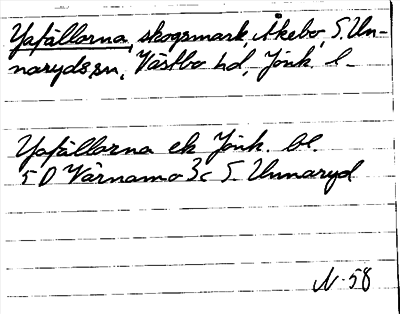 Yafällorna, skogsmark, Åkebo, S. Un-
naryds sn, Västbo hd, Jönk. l-
Yafällorna ek Jönk. bl.
5 D Värnamo 3c S. Unnaryd
N-58